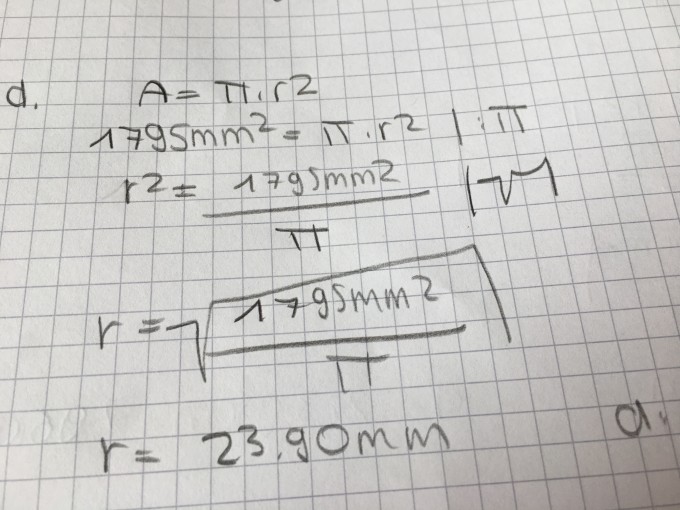 d. A = π · r²
1795mm² = π · r² | : π
r² = 1795mm² / π |√
r = √(1795mm² / π)
r = 23,90mm
a.